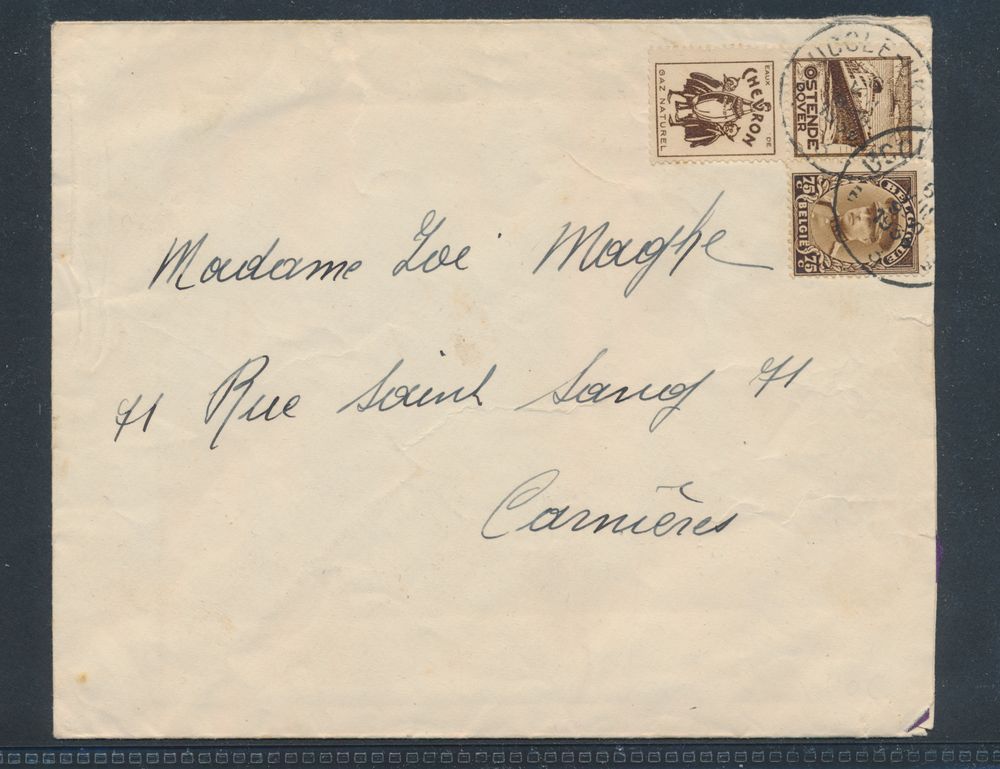 EAUX DE
CHEVRON
GAZ NATUREL
OSTENDE
DOVER
UCCLE
75 c BELGIË 75 c
BELGIQUE
Madame Zoé Maghe
71 Rue Saint Sang 71
Carnières